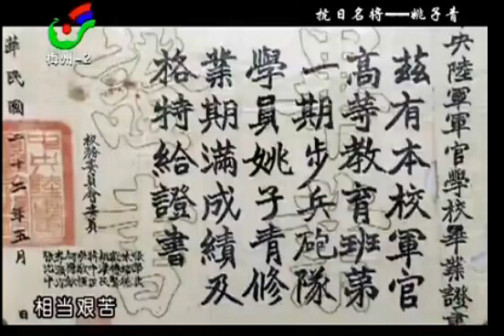 抗日名将——姚子青
梅州-2
央陸軍軍官學校畢業證書
兹有本校軍官
高等教育班第
一期步兵砲隊
學員姚子青修
業期滿成績及
格特給證書
校務委員會委員
華民國二十二年五月 日
相当艰苦